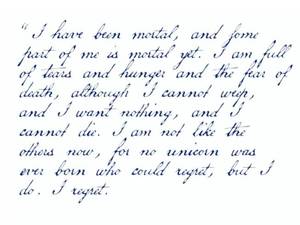 “I have been mortal, and some
part of me is mortal yet. I am full
of tears and hunger and the fear of
death, although I cannot weep,
and I want nothing, and I
cannot die. I am not like the
others now, for no unicorn was
ever born who could regret, but I
do. I regret.